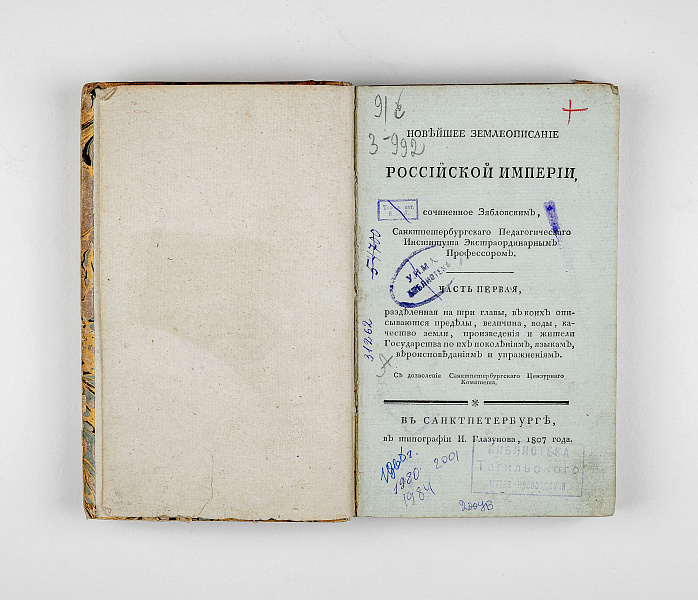 91
3-992
НОВѢЙШЕЕ ЗЕМЛЕОПИСАНІЕ
РОССІЙСКОЙ ИМПЕРІИ,
сочиненное Зябловскимъ,
Санктпетербургскаго Педагогическаго
Института Экстраординарнымъ
Профессоромъ.
54700
БИБЛИОТЕКА
ЧАСТЬ ПЕРВАЯ,
раздѣленная на три главы, въ коихъ опи-
сываются предѣлы, величина, воды, ка-
чество земли, произведенія и жители
Государства по ихъ поколѣніямъ, языкамъ,
вѣроисповѣданіямъ и упражненіямъ.
31262
Съ дозволенія Санктпетербургскаго Цензурнаго
Комитета.
ВЪ САНКТПЕТЕРБУРГѢ,
въ типографіи И. Глазунова, 1807 года.
1980 2001
1984